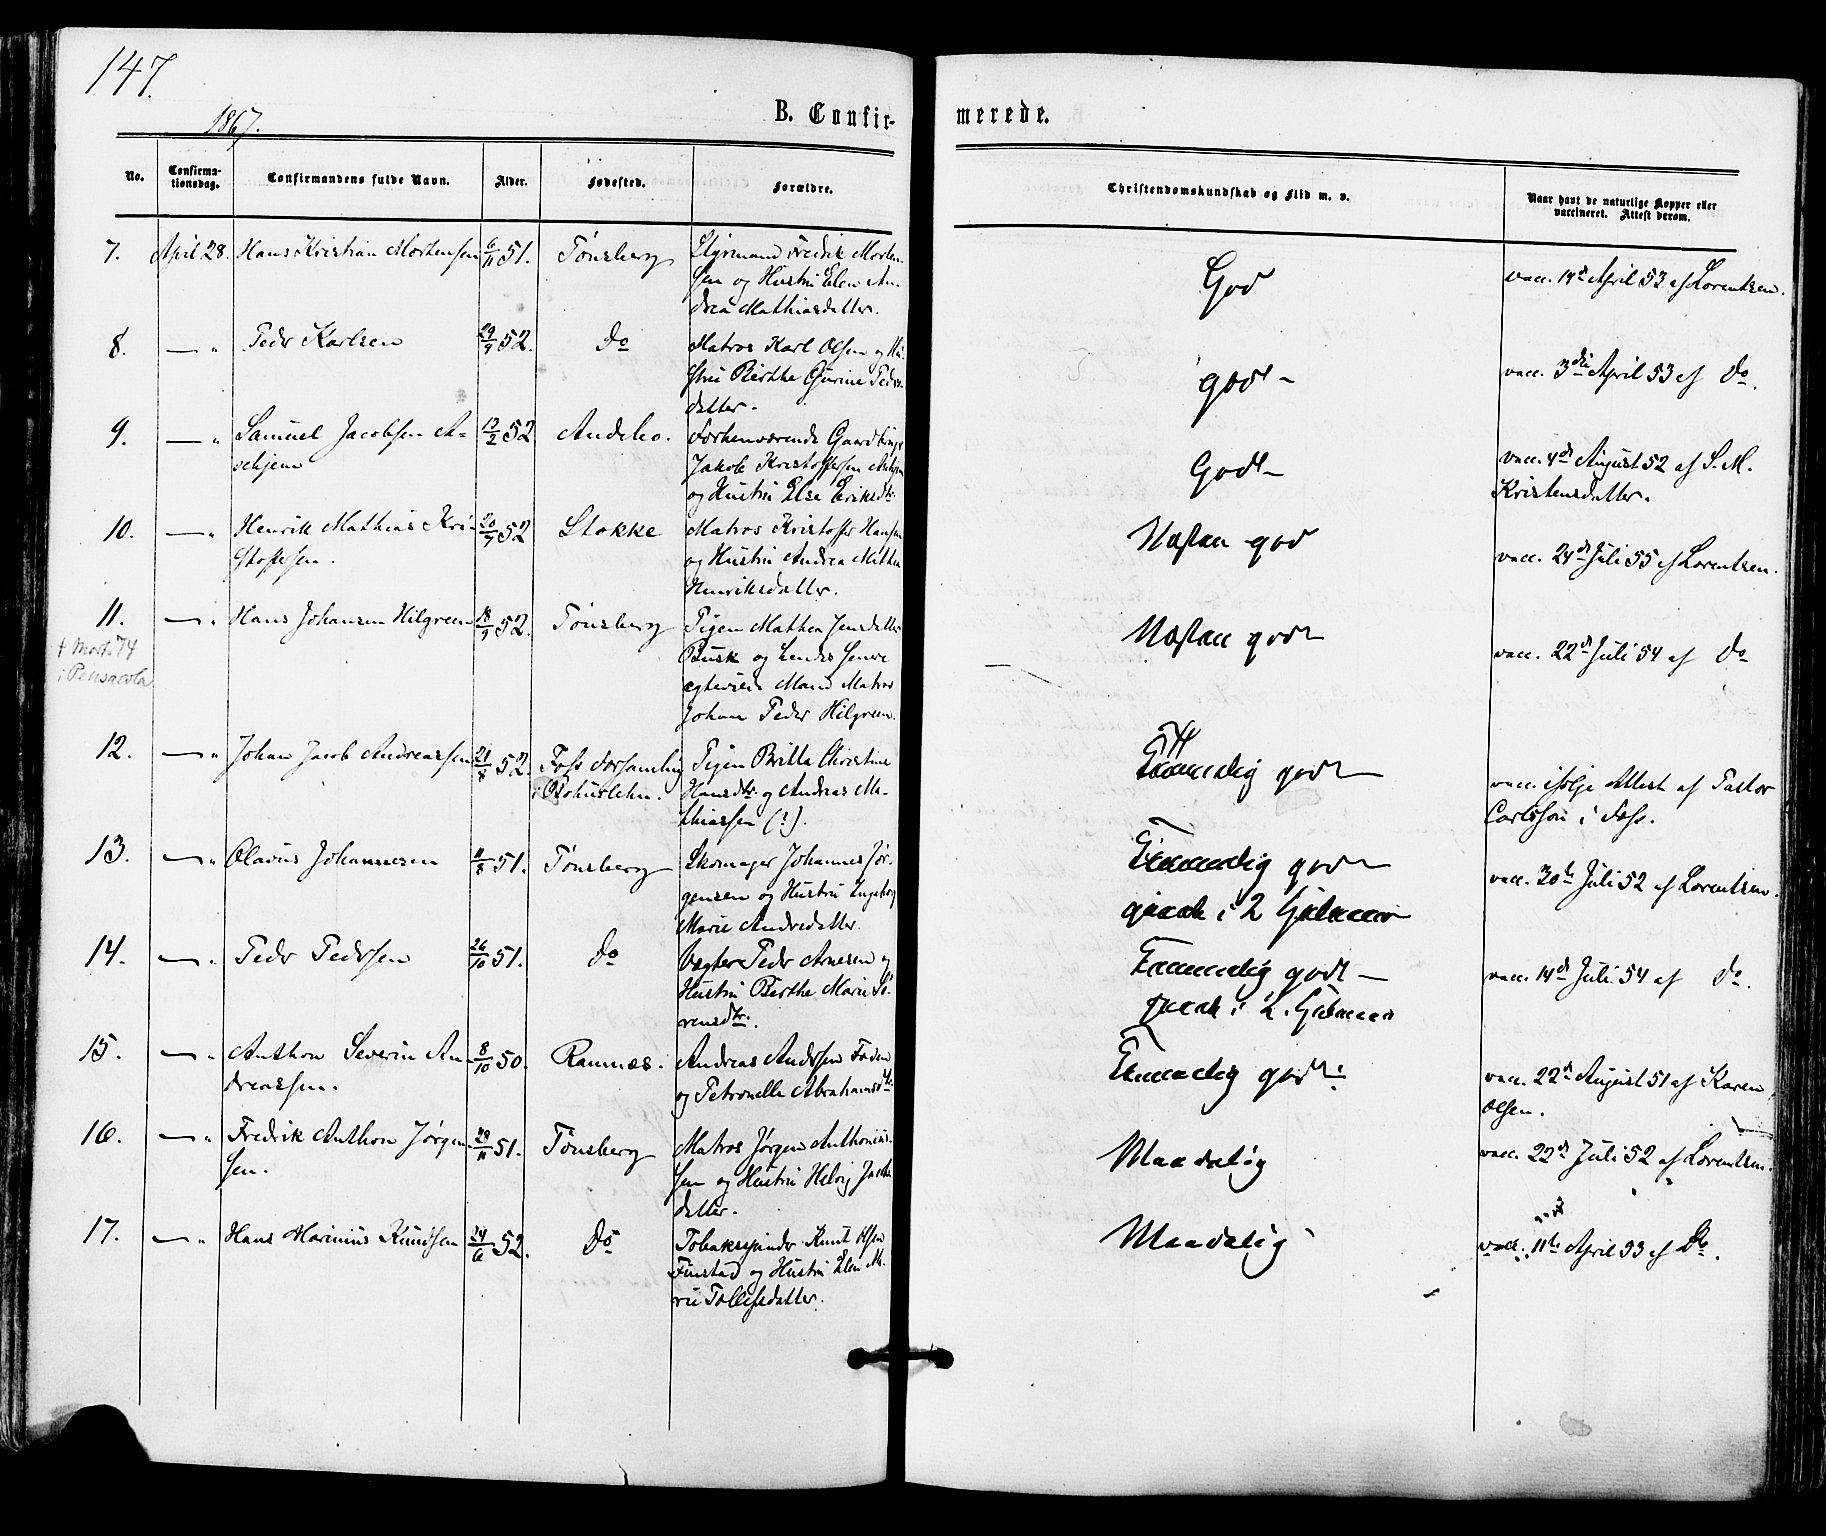 147.
1867.
B. Confir-
merede.
No.
Confirma-
tionsdag.
Confirmandens fulde Navn.
Alder.
Fødested.
Forældre.
Christendomskundskab og Flid m. v.
Naar havt de naturlige Kopper eller
vaccineret. Attest derom.
7. April 28. Hans Kristian Mortensen 6/11 51. Tønsberg Styrmand Fredrik Morten-
sen og Hustru Elen An-
drea Mathiasdatter.
God
vacc. 14d April 53 af Lorentzen.
8. — " Peder Karlsen 29/9 52. Do Matros Karl Olsen og Hu-
stru Birthe Gurine Peders-
datter.
godt
vacc. 3die April 53 af Do.
9. — " Samuel Jacobsen A-
skjem 52 Andebo. Forhenværende Gaardbruger
Jakob Kristoffersen Askjem
og Hustru Else Eriksdtr.
Godt
vacc. 4d August 52 af S. M.
Kristensdatter.
10. — " Henrik Mathias Kri-
stoffersen. 52 Stokke Matros Kristoffer Hansen
og Hustru Andrea Mathea
Henriksdatter.
Næsten god
vacc. 24d Juli 55 af Lorentzen.
11. — " Hans Johansen Hilgreen 18/9 52. Tønsberg Pigen Mathea Jensdatter
Busk og hendes senere
ægteviede Mand Matros
Johan Peder Hilgreen.
† Mort. 74
i Pensacola
Næsten godt
vacc. 22d Juli 54 af Do
12. — " Johan Jacob Andreassen 21/8 52. Foss Forsamling
i Bohuslehn. Pigen Britta Christine
Hansdtr. og Andreas Ma-
thiassen (?).
Temmelig godt
vacc. ifølge Attest af Pastor
Carlsson i Foss.
13. — " Olavus Johannesen 51. Tønsberg Skomager Johannes Jør-
gensen og Hustru Ingeborg
Marie Andredatter.
Temmelig godt
vacc. 30te Juli 52 af Lorentzen.
14. — " Peder Pedersen 26/10 51. Do Vægter Peder Arnesen og
Hustru Birthe Marie Sø-
rensdtr.
Temmelig godt
vacc. 14d Juli 54 af Do.
15. — " Anthon Severin An-
dreassen. 8/10 50. Ramnæs. Andreas Andersen Foden
og Petronelle Abrahamsdtr.
Temmelig godt
vacc. 22d August 51 af Karen
Olsen.
16. — " Fredrik Anthon Jørgen-
sen. 51. Tønsberg Matros Jørgen Anthonius-
sen og Hustru Helvig Jacobs-
datter.
Maadelig
vacc. 22d Juli 52 af Lorentzen.
17. — " Hans Marinius Knudsen 24/6 52. Do Tobaksspinder Knut Olsen
Finstad og Hustru Elen Ma-
rie Tollefsdatter.
Maadelig
vacc. 11te April 53 af Do.